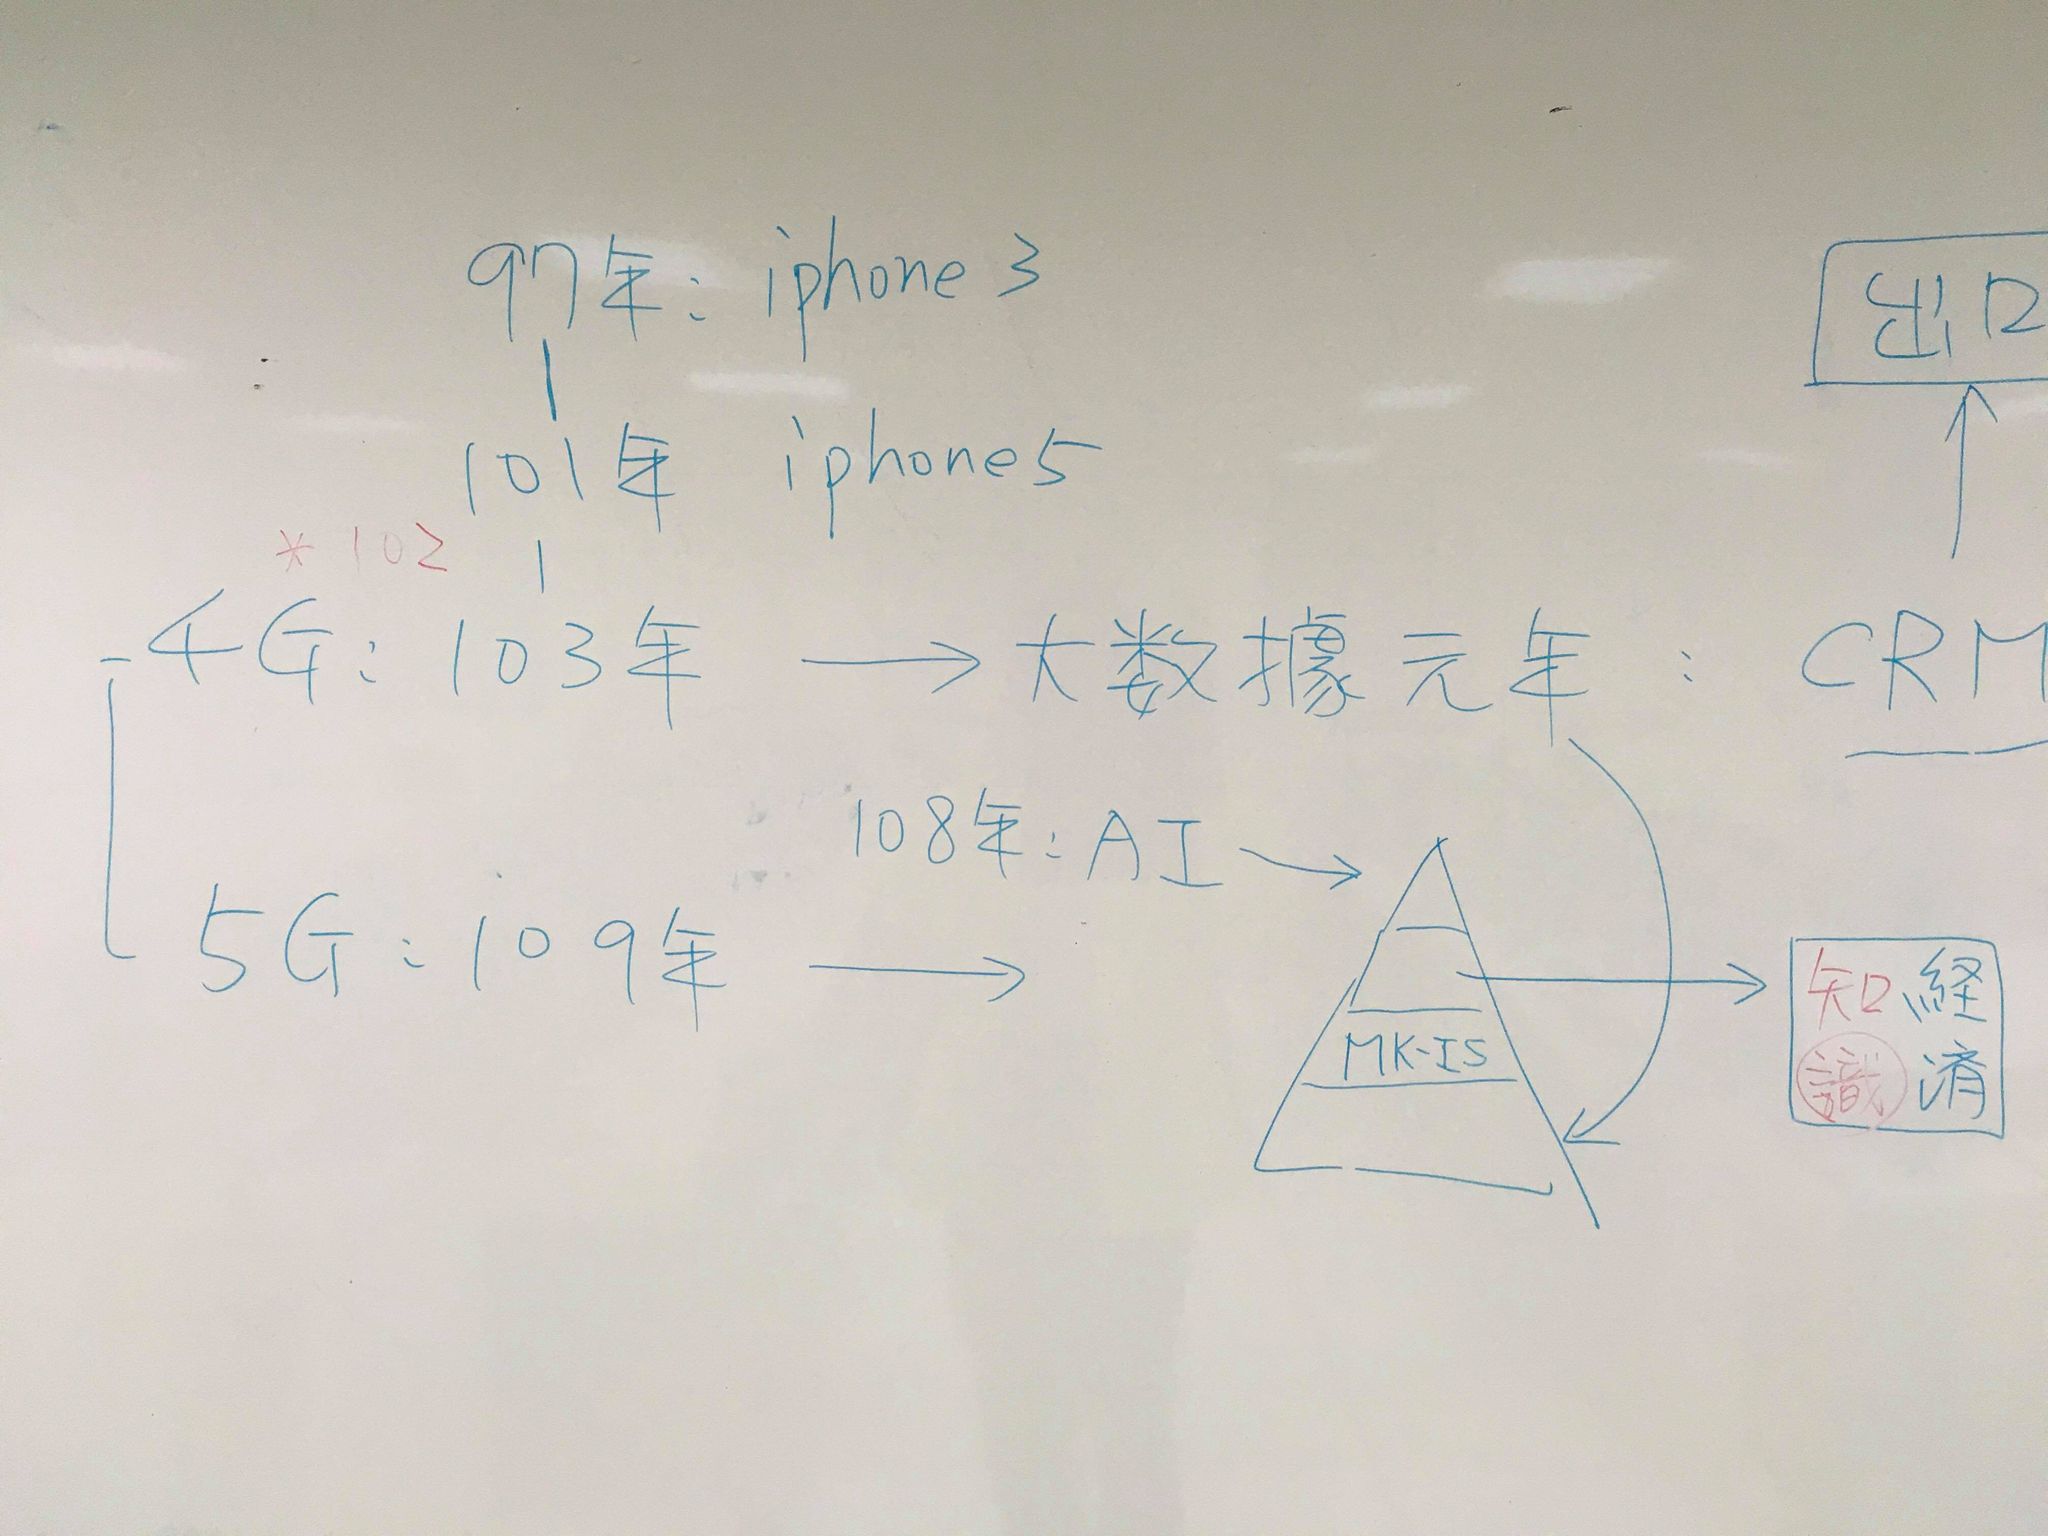 97年: iphone 3
出口
101年 iphone5
* 102
4G: 103年 → 大数據元年: CRM
108年: AI →
5G: 109年 →
MK-IS
知経
識済